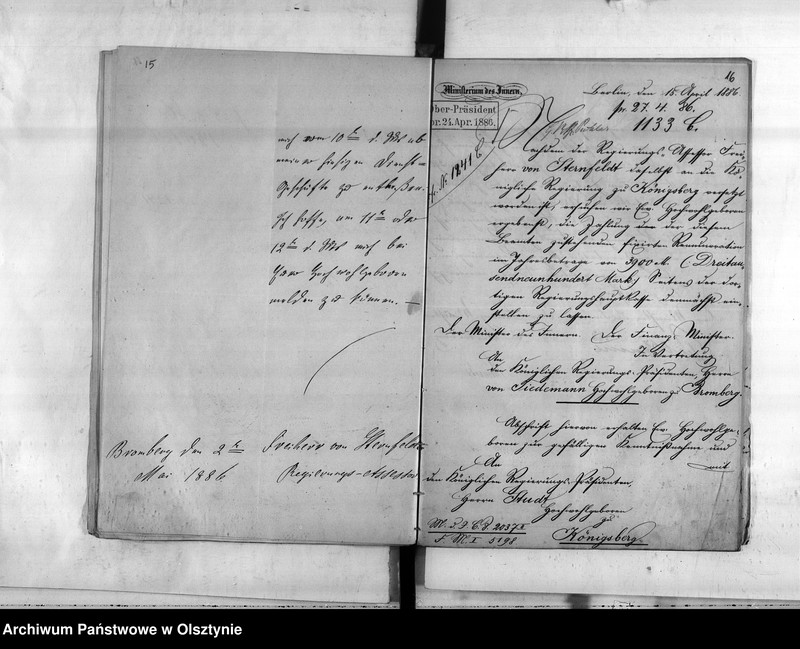 15
mich vom 10ten d. Mts ab
meiner hiesigen Dienst-
Geschäfte zu entheben.
Ich hoffe, am 11ten oder
12ten d. Mts mich bei
Euer Hochwohlgeboren
melden zu können. —
Bromberg den 2ten
Mai 1886
Freiherr von Sternfeldt
Regierungs-Assessor
16
Ministerium des Innern.
Ober-Präsident
pr. 24. Apr. 1886.
No 1241 C
Berlin, den 15. April 1886
pr. 27. 4. 86.
1133 C.
Nachdem der Regierungs-Assessor Frei-
herr von Sternfeldt daselbst an die Kö-
nigliche Regierung zu Königsberg versetzt
worden ist, ersuchen wir Ew. Hochwohlgeboren
ergebenst, die Zahlung der diesem
Beamten zustehenden fixirten Remuneration
im Jahresbetrage von 3900 M. (Dreitau-
sendneunhundert Mark) Seitens der dor-
tigen Regierungshauptkasse demnächst ein-
stellen zu lassen.
Der Minister des Innern. Der Finanz-Minister.
In Vertretung
An
den Königlichen Regierungs-Präsidenten, Herrn
von Tiedemann Hochwohlgeboren zu Bromberg.
Abschrift hiervon erhalten Ew. Hochwohlge-
boren zur gefälligen Kenntnißnahme und
mit
An
den Königlichen Regierungs-Präsidenten,
Herrn Studt
Hochwohlgeboren
zu
Königsberg.
M. d. J. 2037
F. M. I. 5198
Archiwum Państwowe w Olsztynie